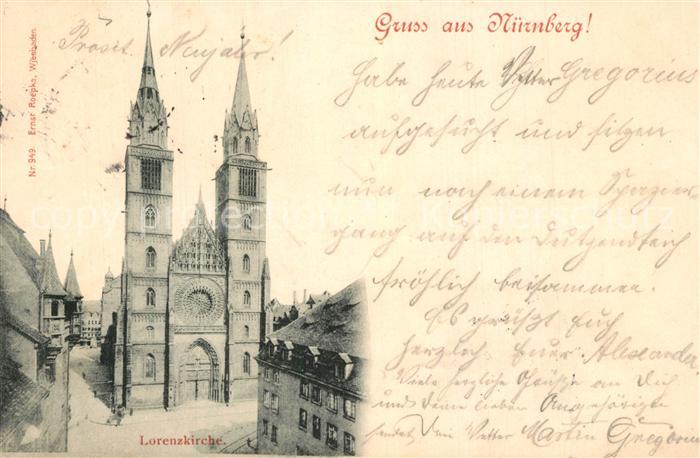 Gruss aus Nürnberg!
Prosit Neujahr!
Nr. 949. Ernst Roepke, Wiesbaden.
Habe heute Vetter Gregorius
aufgesucht und sitzen
nun noch einem Spazier-
gang auf den Dutzendteich
fröhlich beisammen.
Es grüßt Euch
herzlich Euer Alexander
Viele herzliche Grüße an Dich
und Deine lieben Angehörige
sendet Dein Vetter Martin Gregorius
Lorenzkirche.
copyright protection of Kapierschutz